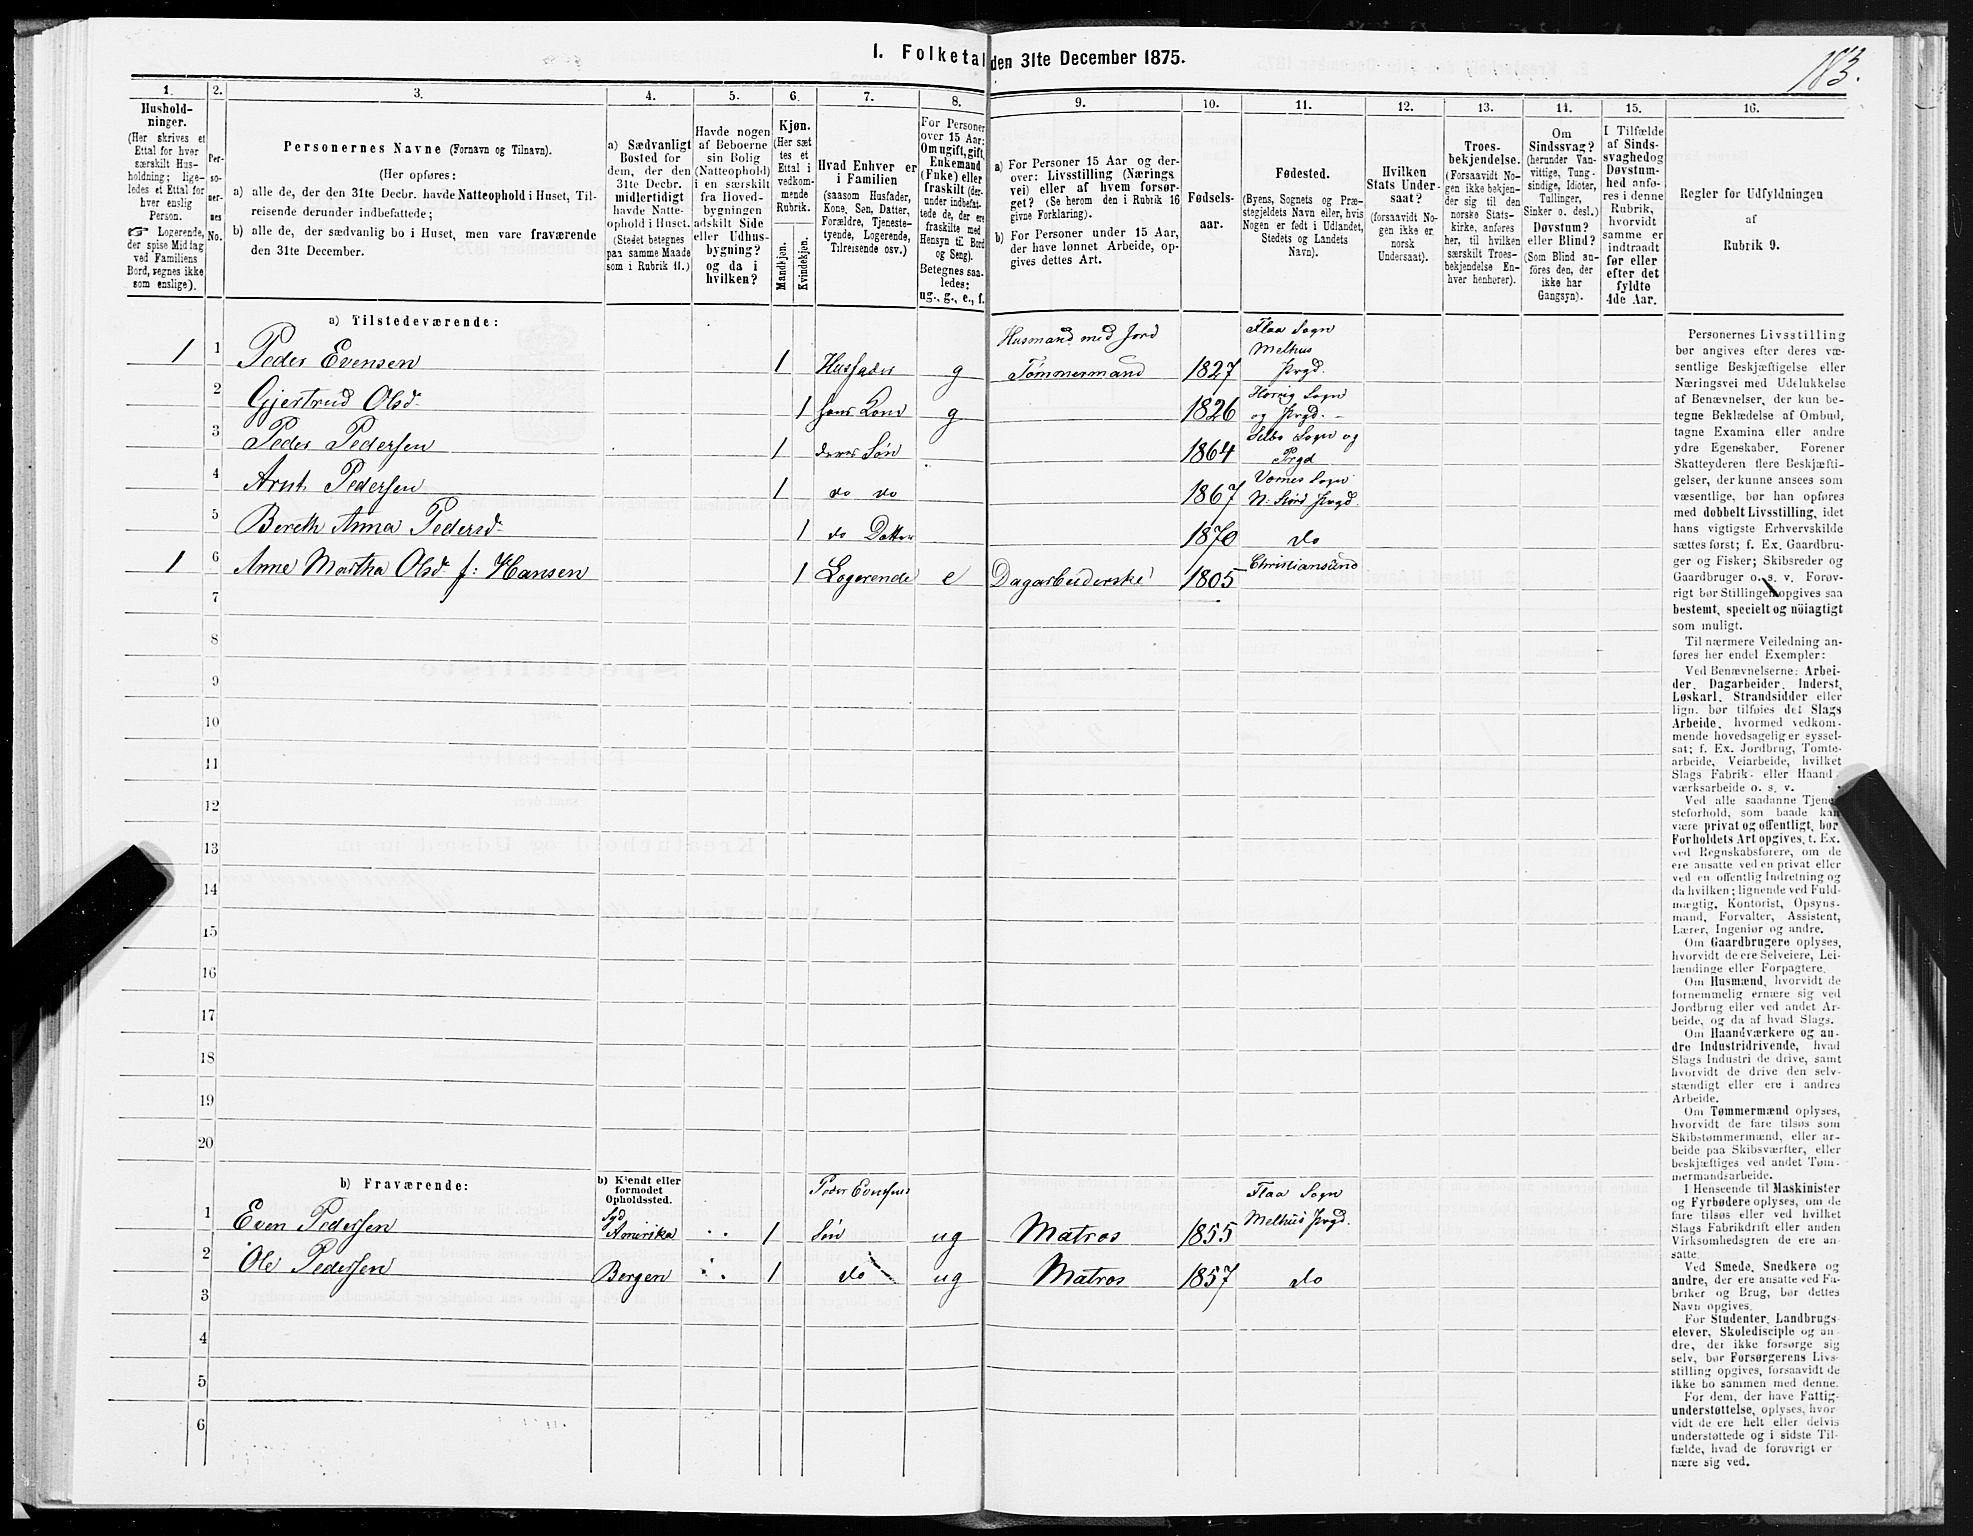 I. Folketal den 31te December 1875.
183.
1.
Hushold-
ninger.
(Her skrives et
Ettal for hver
særskilt Hus-
holdning; lige-
ledes et Ettal for
hver enslig
Person.
☞ Logerende,
der spise Middag
ved Familiens
Bord, regnes ikke
som enslige).
2.
Per-
so-
ner-
nes
No.
3.
Personernes Navne (Fornavn og Tilnavn).
(Her opføres:
a) alle de, der den 31te Decbr. havde Natteophold i Huset, Til-
reisende derunder indbefattede;
b) alle de, der sædvanlig bo i Huset, men vare fraværende
den 31te December.
4.
a) Sædvanligt
Bosted for
dem, der den
31te Decbr.
midlertidigt
havde Natte-
ophold i Huset.
(Stedet betegnes
paa samme Maade
som i Rubrik 11.)
5.
Havde nogen
af Beboerne
sin Bolig
(Natteophold)
i en særskilt
fra Hoved-
bygningen
adskilt Side
eller Udhus-
bygning?
og da i
hvilken?
6.
Kjøn.
(Her sæt-
tes et
Ettal i
vedkom-
mende
Rubrik.
Mandkjøn.
Kvindekjøn.
7.
Hvad Enhver er
i Familien
(saasom Husfader,
Kone, Søn, Datter,
Forældre, Tjeneste-
tyende, Logerende,
Tilreisende osv.)
8.
For Personer
over 15 Aar:
Om ugift, gift,
Enkemand
(Enke) eller
fraskilt (der-
under indbefat-
tede de, der ere
fraskilte med
Hensyn til Bord
og Seng).
Betegnes saa-
ledes:
ug., g., e., f.
9.
a) For Personer 15 Aar og der-
over: Livsstilling (Nærings-
vei) eller af hvem forsør-
get? (Se herom den i Rubrik 16
givne Forklaring).
b) For Personer under 15 Aar,
der have lønnet Arbeide, op-
gives dettes Art.
10.
Fødsels-
aar.
11.
Fødested.
(Byens, Sognets og Præ-
stegjeldets Navn eller, hvis
Nogen er født i Udlandet,
Stedets og Landets
Navn).
12.
Hvilken
Stats Under-
saat?
(forsaavidt No-
gen ikke er
norsk
Undersaat).
13.
Troes-
bekjendelse.
(Forsaavidt No-
gen ikke bekjen-
der sig til den
norske Stats-
kirke, anføres
her, til hvilken
særskilt Troes-
bekjendelse En-
hver henhører).
14.
Om
Sindssvag?
(herunder Van-
vittige, Tung-
sindige, Idioter,
Tullinger,
Sinker o. desl.)
Døvstum?
eller Blind?
(Som Blind an-
føres den, der
ikke har
Gangsyn).
15.
I Tilfælde
af Sinds-
svaghed og
Døvstum-
hed anfø-
res i denne
Rubrik,
hvorvidt
samme er
indtraadt
før eller
efter det
fyldte
4de Aar.
16.
Regler for Udfyldningen
af
Rubrik 9.
a) Tilstedeværende:
1 1 Peder Evensen 1 Husfader g Husmand med Jord Tømmermand 1827 Flaa Sogn Melhus Prgd.
2 Gjertrud Olsd. 1 hans Kone g 1826 Horrig Sogn og Prgd. –
3 Peder Pedersen 1 deres Søn 1864 Selbo Sogn og Prgd
4 Arnt Pedersen 1 do do 1867 Værnes Sogn N: Størd Prgd.
5 Bereth Anna Pedersd. 1 do Datter 1870 do
1 6 Anne Martha Olsd f: Hansen 1 Logerende e Dagarbeiderske 1805 Christiansund
7
8
9
10
11
12
13
14
15
16
17
18
19
20
b) Fraværende:
b) Kjendt eller
formodet
Opholdssted.
1 Even Pedersen Syd Amerika 1 Peder Evensens Søn ug Matros 1855 Flaa Sogn Melhus Prgd.
2 Ole Pedersen Bergen 1 do ug Matros 1857 do
3
4
5
6
Personernes Livsstilling
bør angives efter deres væ-
sentlige Beskjæftigelse eller
Næringsvei med Udelukkelse
af Benævnelser, der kun be-
tegne Beklædelse af Ombud,
tagne Examina eller andre
ydre Egenskaber. Forener
Skatteyderen flere Beskjæfti-
gelser, der kunne ansees som
væsentlige, bør han opføres
med dobbelt Livsstilling, idet
hans vigtigste Erhvervskilde
sættes først; f. Ex. Gaardbru-
ger og Fisker; Skibsreder og
Gaardbruger o. s. v. Forøv-
rigt bør Stillingen opgives saa
bestemt, specielt og nöiagtigt
som muligt.
Til nærmere Veiledning an-
føres her endel Exempler:
Ved Benævnelserne: Arbei-
der, Dagarbeider, Inderst,
Løskarl, Strandsidder eller
lign. bør tilføies det Slags
Arbeide, hvormed vedkom-
mende hovedsagelig er syssel-
sat; f. Ex. Jordbrug, Tomte-
arbeide, Veiarbeide, hvilket
Slags Fabrik- eller Haand-
værksarbeide o. s. v.
Ved alle saadanne Tjene-
steforhold, som baade kan
være privat og offentligt, bør
Forholdets Art opgives, t. Ex.
ved Regnskabsførere, om de
ere ansatte ved en privat eller
ved en offentlig Indretning og
da hvilken; lignende ved Fuld-
mægtig, Kontorist, Opsyns-
mand, Forvalter, Assistent,
Lærer, Ingeniør og andre.
Om Gaardbrugere oplyses,
hvorvidt de ere Selveiere, Lei-
lændinge eller Forpagtere.
Om Husmænd, hvorvidt de
fornemmelig ernære sig ved
Jordbrug eller ved andet Ar-
beide, og da af hvad Slags.
Om Haandværkere og an-
dre Industridrivende, hvad
Slags Industri de drive, samt
hvorvidt de drive den selv-
stændigt eller ere i andres
Arbeide.
Om Tømmermænd oplyses,
hvorvidt de fare tilsøs som
Skibstømmermænd, eller ar-
beide paa Skibsværfter, eller
beskjæftiges ved andet Tøm-
mermandsarbeide.
I Henseende til Maskinister
og Fyrbødere oplyses, om de
fare tilsøs eller ved hvilket
Slags Fabrikdrift eller anden
Virksomhedsgren de ere an-
satte.
Ved Smede, Snedkere og
andre, der ere ansatte ved Fa-
briker og Brug, bør dettes
Navn opgives.
For Studenter, Landbrugs-
elever, Skoledisciple og an-
dre, der ikke forsørge sig
selv, bør Forsørgerens Livs-
stilling opgives, forsaavidt de
ikke bo sammen med denne.
For dem, der have Fattig-
understøttelse, oplyses, hvor-
vidt de ere helt eller delvis
understøttede og i sidste Til-
fælde, hvad de forøvrigt er-
nære sig ved.